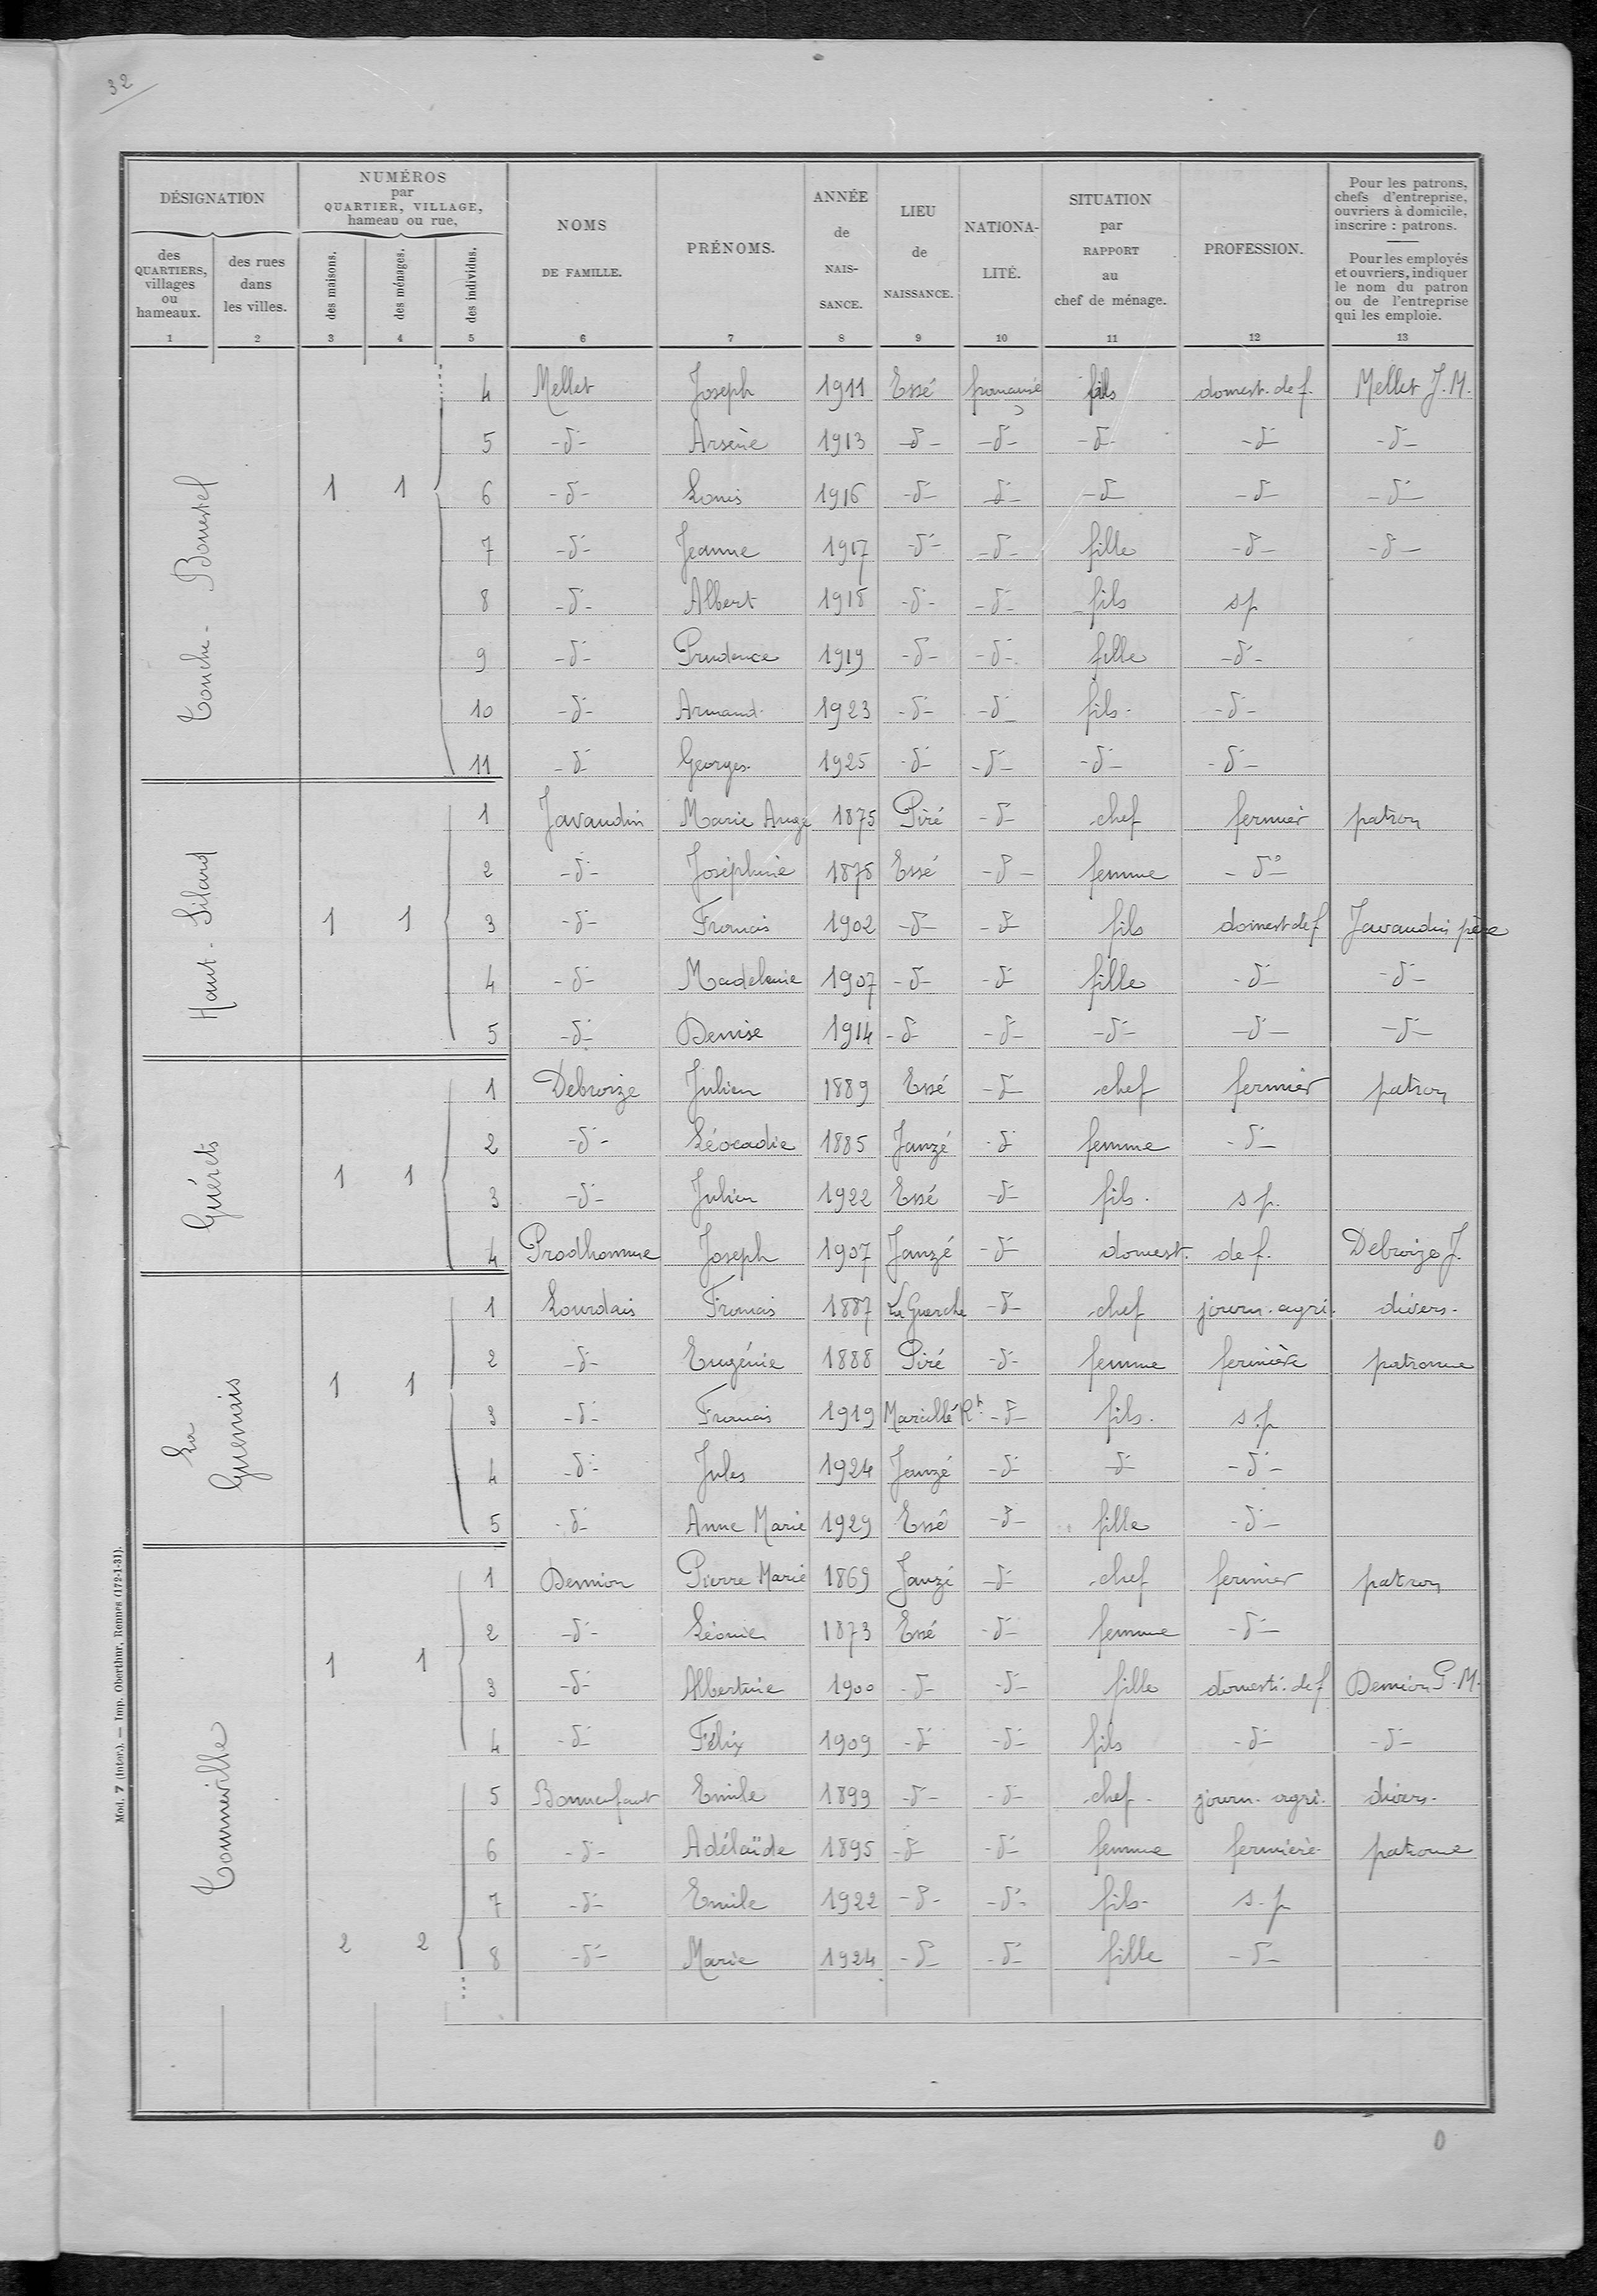 32
DÉSIGNATION
des QUARTIERS, villages ou hameaux.
des rues dans les villes.
NUMÉROS par QUARTIER, VILLAGE, hameau ou rue,
des maisons.
des ménages.
des individus.
NOMS DE FAMILLE.
PRÉNOMS.
ANNÉE de NAIS-SANCE.
LIEU de NAISSANCE.
NATIONA-LITÉ.
SITUATION par RAPPORT au chef de ménage.
PROFESSION.
Pour les patrons, chefs d'entreprise, ouvriers à domicile, inscrire : patrons.
Pour les employés et ouvriers, indiquer le nom du patron ou de l'entreprise qui les emploie.
1 2 3 4 5 6 7 8 9 10 11 12 13
Touche-Bourrel 1 1
4 Mellet Joseph 1911 Essé française fils domest. de f. Mellet J. M.
5 -d- Arsène 1913 -d- -d- -d- -d- -d-
6 -d- Louis 1916 -d- -d- -d- -d- -d-
7 -d- Jeanne 1917 -d- -d- fille -d- -d-
8 -d- Albert 1918 -d- -d- fils sp
9 -d- Prudence 1919 -d- -d- fille -d-
10 -d- Armand 1923 -d- -d- fils -d-
11 -d- Georges 1925 -d- -d- -d- -d-
Haut-Silard 1 1
1 Javaudin Marie Ange 1875 Piré -d- chef fermier patron
2 -d- Joséphine 1878 Essé -d- femme -d°
3 -d- François 1902 -d- -d- fils domest de f Javaudin père
4 -d- Madeleine 1907 -d- -d- fille -d- -d-
5 -d- Denise 1914 -d- -d- -d- -d- -d-
Guérets 1 1
1 Debroize Julien 1889 Essé -d- chef fermier patron
2 -d- Léocadie 1885 Janzé -d- femme -d-
3 -d- Julien 1922 Essé -d- fils sp.
4 Prodhomme Joseph 1907 Janzé -d- domest. de f. Debroize J.
La Guenais 1 1
1 Lourdais François 1887 La Guerche -d- chef journ. agri. divers.
2 -d- Eugénie 1888 Piré -d- femme fermière patronne
3 -d- François 1919 Marcillé Rt -d- fils. s.p
4 -d- Jules 1924 Janzé -d- -d- -d-
5 -d- Anne Marie 1929 Essé -d- fille -d-
Tourneville 1 1
1 Demion Pierre Marie 1869 Janzé -d- chef fermier patron
2 -d- Léonie 1873 Essé -d- femme -d-
3 -d- Albertine 1900 -d- -d- fille domesti. de f Demion P. M.
4 -d- Félix 1909 -d- -d- fils -d- -d-
2 2
5 Bonnenfant Emile 1899 -d- -d- chef journ. agri. divers.
6 -d- Adélaïde 1895 -d- -d- femme fermière patronne
7 -d- Emile 1922 -d- -d- fils s.p
8 -d- Marie 1924 -d- -d- fille -d-
Mod. 7 (Inter.). — Imp. Oberthur, Rennes (172-1-31).
0